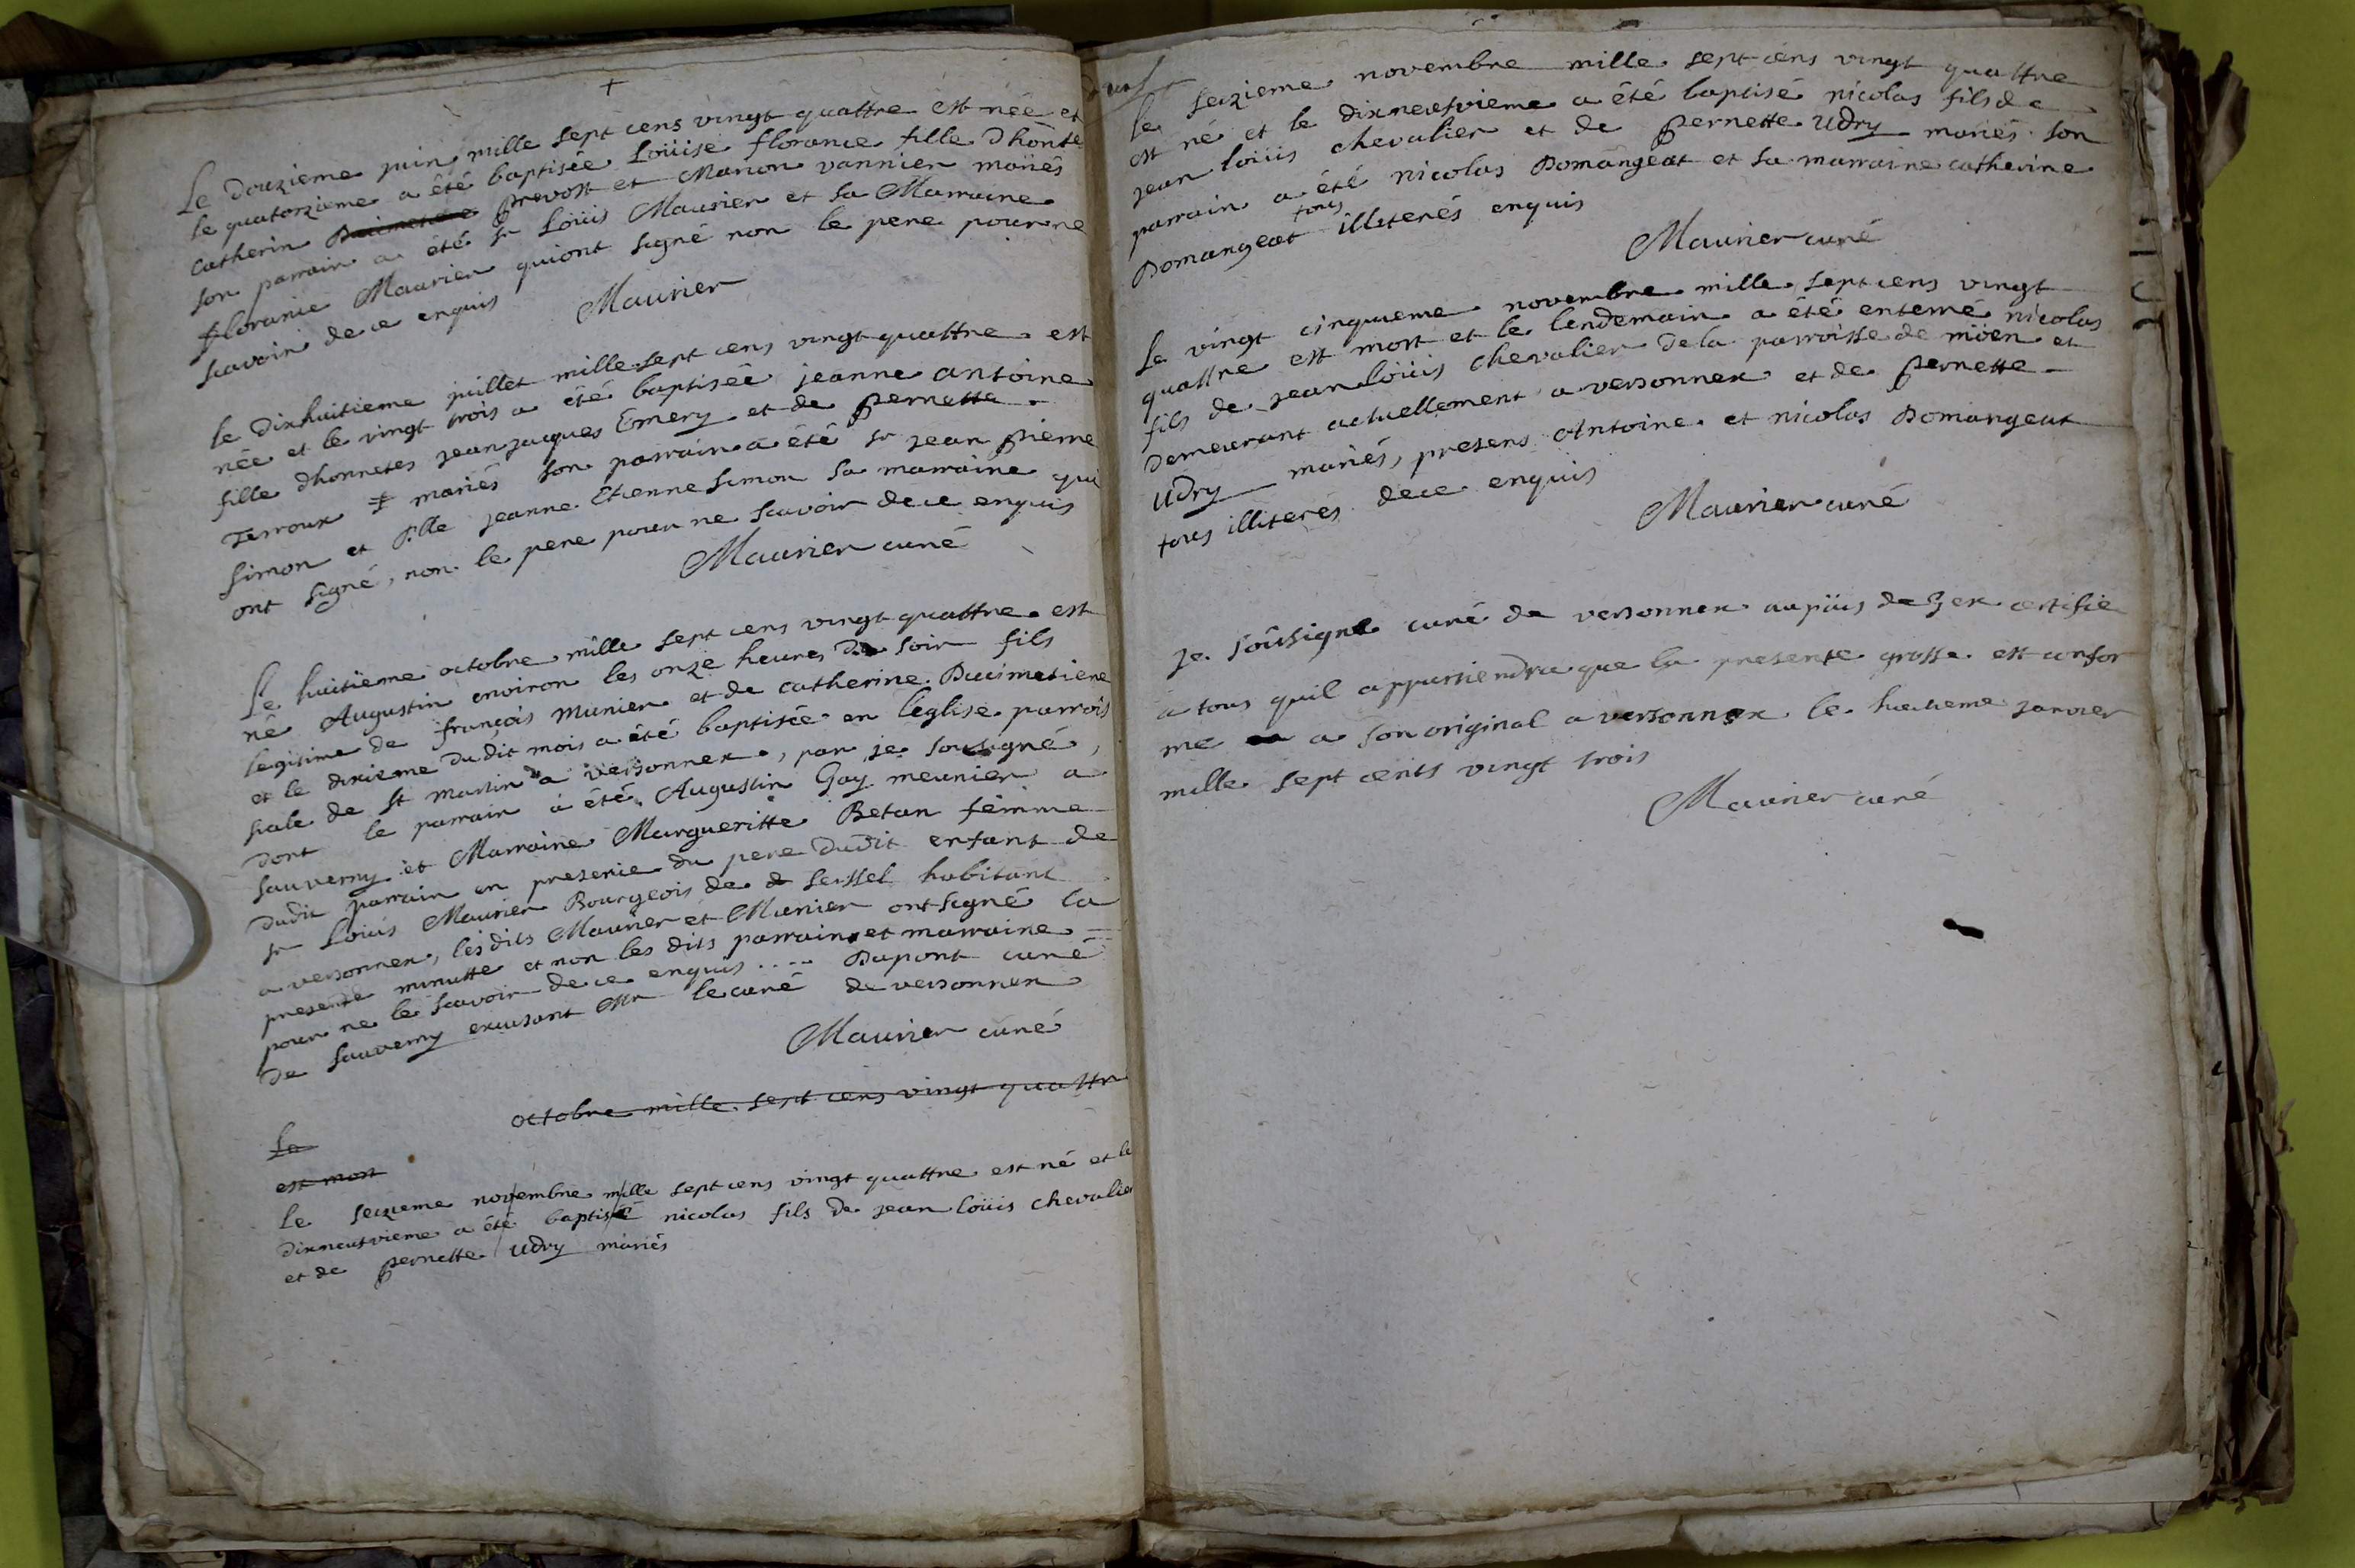 Le douzieme juin mille sept cens vingt quattre est née et
le quatorzieme a été baptisée Loüise florance fille dhonte
Catherin prevost et Manon vannier mariés
son parrain a été sr Loüis Maurier et sa Marraine
florance Maurier qui ont signé non le pere pour ne
scavoir de ce enquis Maurier
le dixhuitieme juillet mille sept cens vingt quattre est
née et le vingt trois a été baptisée jeanne antoine
fille dhonnetes jean jacques Emery et de pernette
Terroux mariés son parrain a été sr jean pierre
simon et dlle jeanne Etienne simon sa marraine qui
ont signé, non le pere pour ne scavoir de ce enquis
Maurier curé
Le huitieme octobre mille sept cens vingt quattre est
né Augustin environ les onze heures du soir fils
legitime de françois munier et de catherine Ducimetiere
et le dixieme dudit mois a été baptisée en l'eglise parrois
siale de st martin a versonnex, par je sousigné,
dont le parrain a été Augustin Gay meunier a
sauverny et Marraine Margueritte Betan femme
dudit parrain en presence du pere dudit enfant de
sr Loüis Maurier Bourgeois de Seissel habitant
a versonnex, lesdits Maurier et Munier ont signé la
presente minutte et non les dits parrain et marraine
pour ne le scavoir de ce enquis .... Dupont curé
de sauverny excusant Mr le curé de versonnex
Maurier curé
octobre mille sept cens vingt quattr
Le
est mort
Le seizieme novembre mille sept cens vingt quattre est né et le
dixneufvieme a été baptisé nicolas fils de jean loüis chevalier
et de pernette Udry mariés
le seizieme novembre mille sept cens vingt quattre
est né et le dixneufvieme a été baptisé nicolas fils de
jean loüis chevalier et de pernette Udry mariés son
parrain a été nicolas Domangeat et sa marraine catherine
Domangeat tous illiterés enquis
Maurier curé
Le vingt cinquieme novembre mille sept cens vingt
quattre est mort et le lendemain a été enterré nicolas
fils de jean loüis chevalier de la parroisse de möen et
demeurant actuellement a versonnex et de pernette
Udry mariés, presens Antoine et nicolas Domangeat
tous illiterés de ce enquis
Maurier curé
Je soûsigné curé de versonnex au païis de Gex certifie
a tous quil appartiendra que la presente grosse est confor
me a son original a versonnex le huitieme janvier
mille sept cents vingt trois
Maurier curé